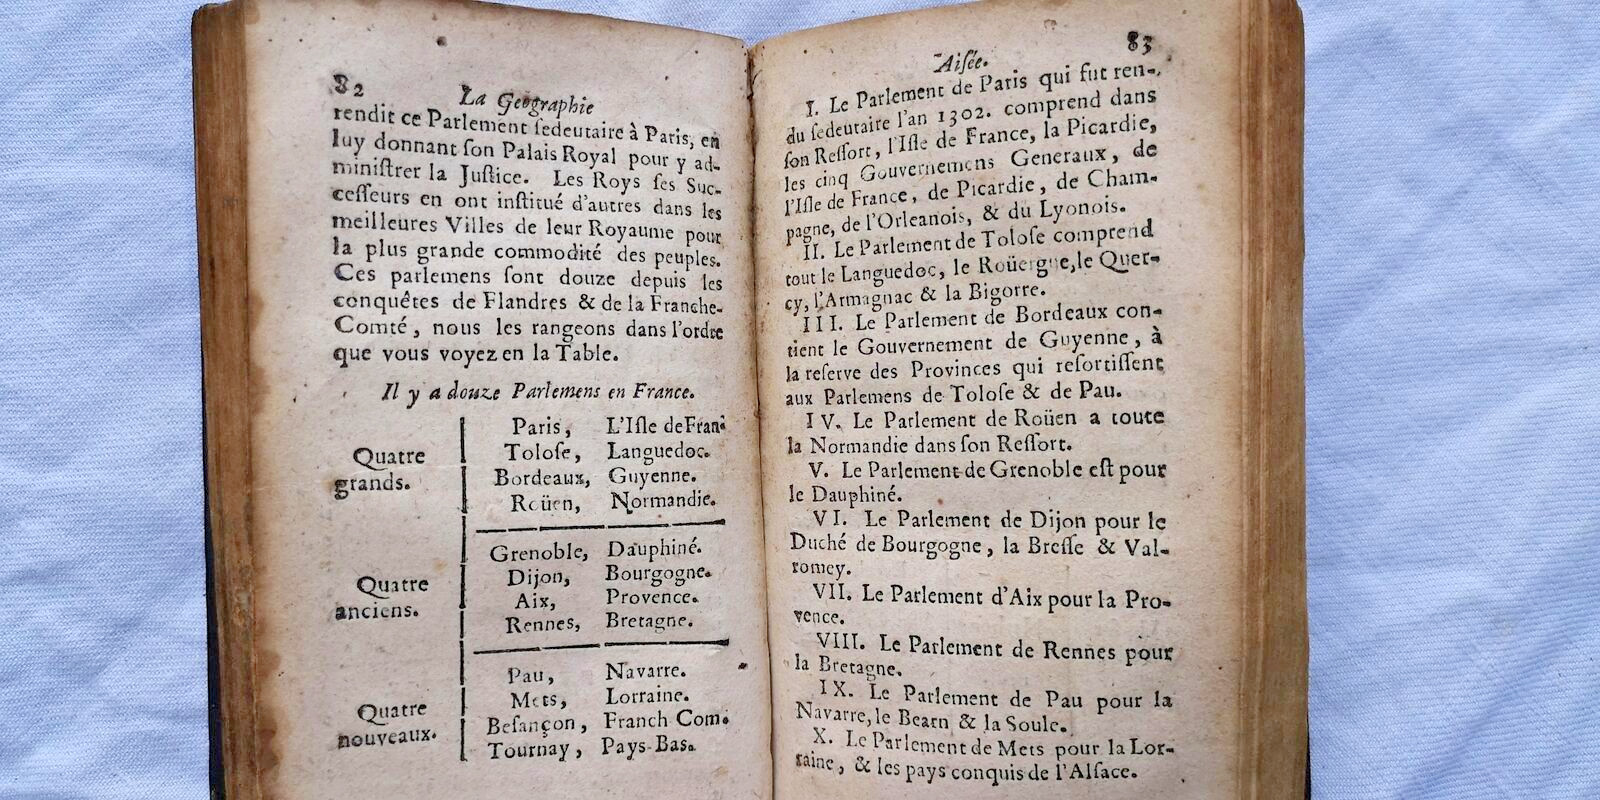 82
La Geographie
rendit ce Parlement ſedeutaire à Paris, en
luy donnant ſon Palais Royal pour y ad-
miniſtrer la Juſtice. Les Roys ſes Suc-
ceſſeurs en ont inſtitué d'autres dans les
meilleures Villes de leur Royaume pour
la plus grande commodité des peuples.
Ces parlemens ſont douze depuis les
conquêtes de Flandres & de la Franche-
Comté, nous les rangeons dans l'ordre
que vous voyez en la Table.
Il y a douze Parlemens en France.
Quatre grands.
Paris, L'Iſle de Fran.
Toloſe, Languedoc.
Bordeaux, Guyenne.
Roüen, Normandie.
Quatre anciens.
Grenoble, Dauphiné.
Dijon, Bourgogne.
Aix, Provence.
Rennes, Bretagne.
Quatre nouveaux.
Pau, Navarre.
Mets, Lorraine.
Beſançon, Franch Com.
Tournay, Pays-Bas.
83
Aiſée.
I. Le Parlement de Paris qui fut ren-
du ſedeutaire l'an 1302. comprend dans
ſon Reſſort, l'Iſle de France, la Picardie,
les cinq Gouvernemens Generaux, de
l'Iſle de France, de Picardie, de Cham-
pagne, de l'Orleanois, & du Lyonois.
II. Le Parlement de Toloſe comprend
tout le Languedoc, le Roüergue, le Quer-
cy, l'Armagnac & la Bigorre.
III. Le Parlement de Bordeaux con-
tient le Gouvernement de Guyenne, à
la reſerve des Provinces qui reſortiſſent
aux Parlemens de Toloſe & de Pau.
IV. Le Parlement de Roüen a toute
la Normandie dans ſon Reſſort.
V. Le Parlement de Grenoble eſt pour
le Dauphiné.
VI. Le Parlement de Dijon pour le
Duché de Bourgogne, la Breſſe & Val-
romey.
VII. Le Parlement d'Aix pour la Pro-
vence.
VIII. Le Parlement de Rennes pour
la Bretagne.
IX. Le Parlement de Pau pour la
Navarre, le Bearn & la Soule.
X. Le Parlement de Mets pour la Lor-
raine, & les pays conquis de l'Alſace.